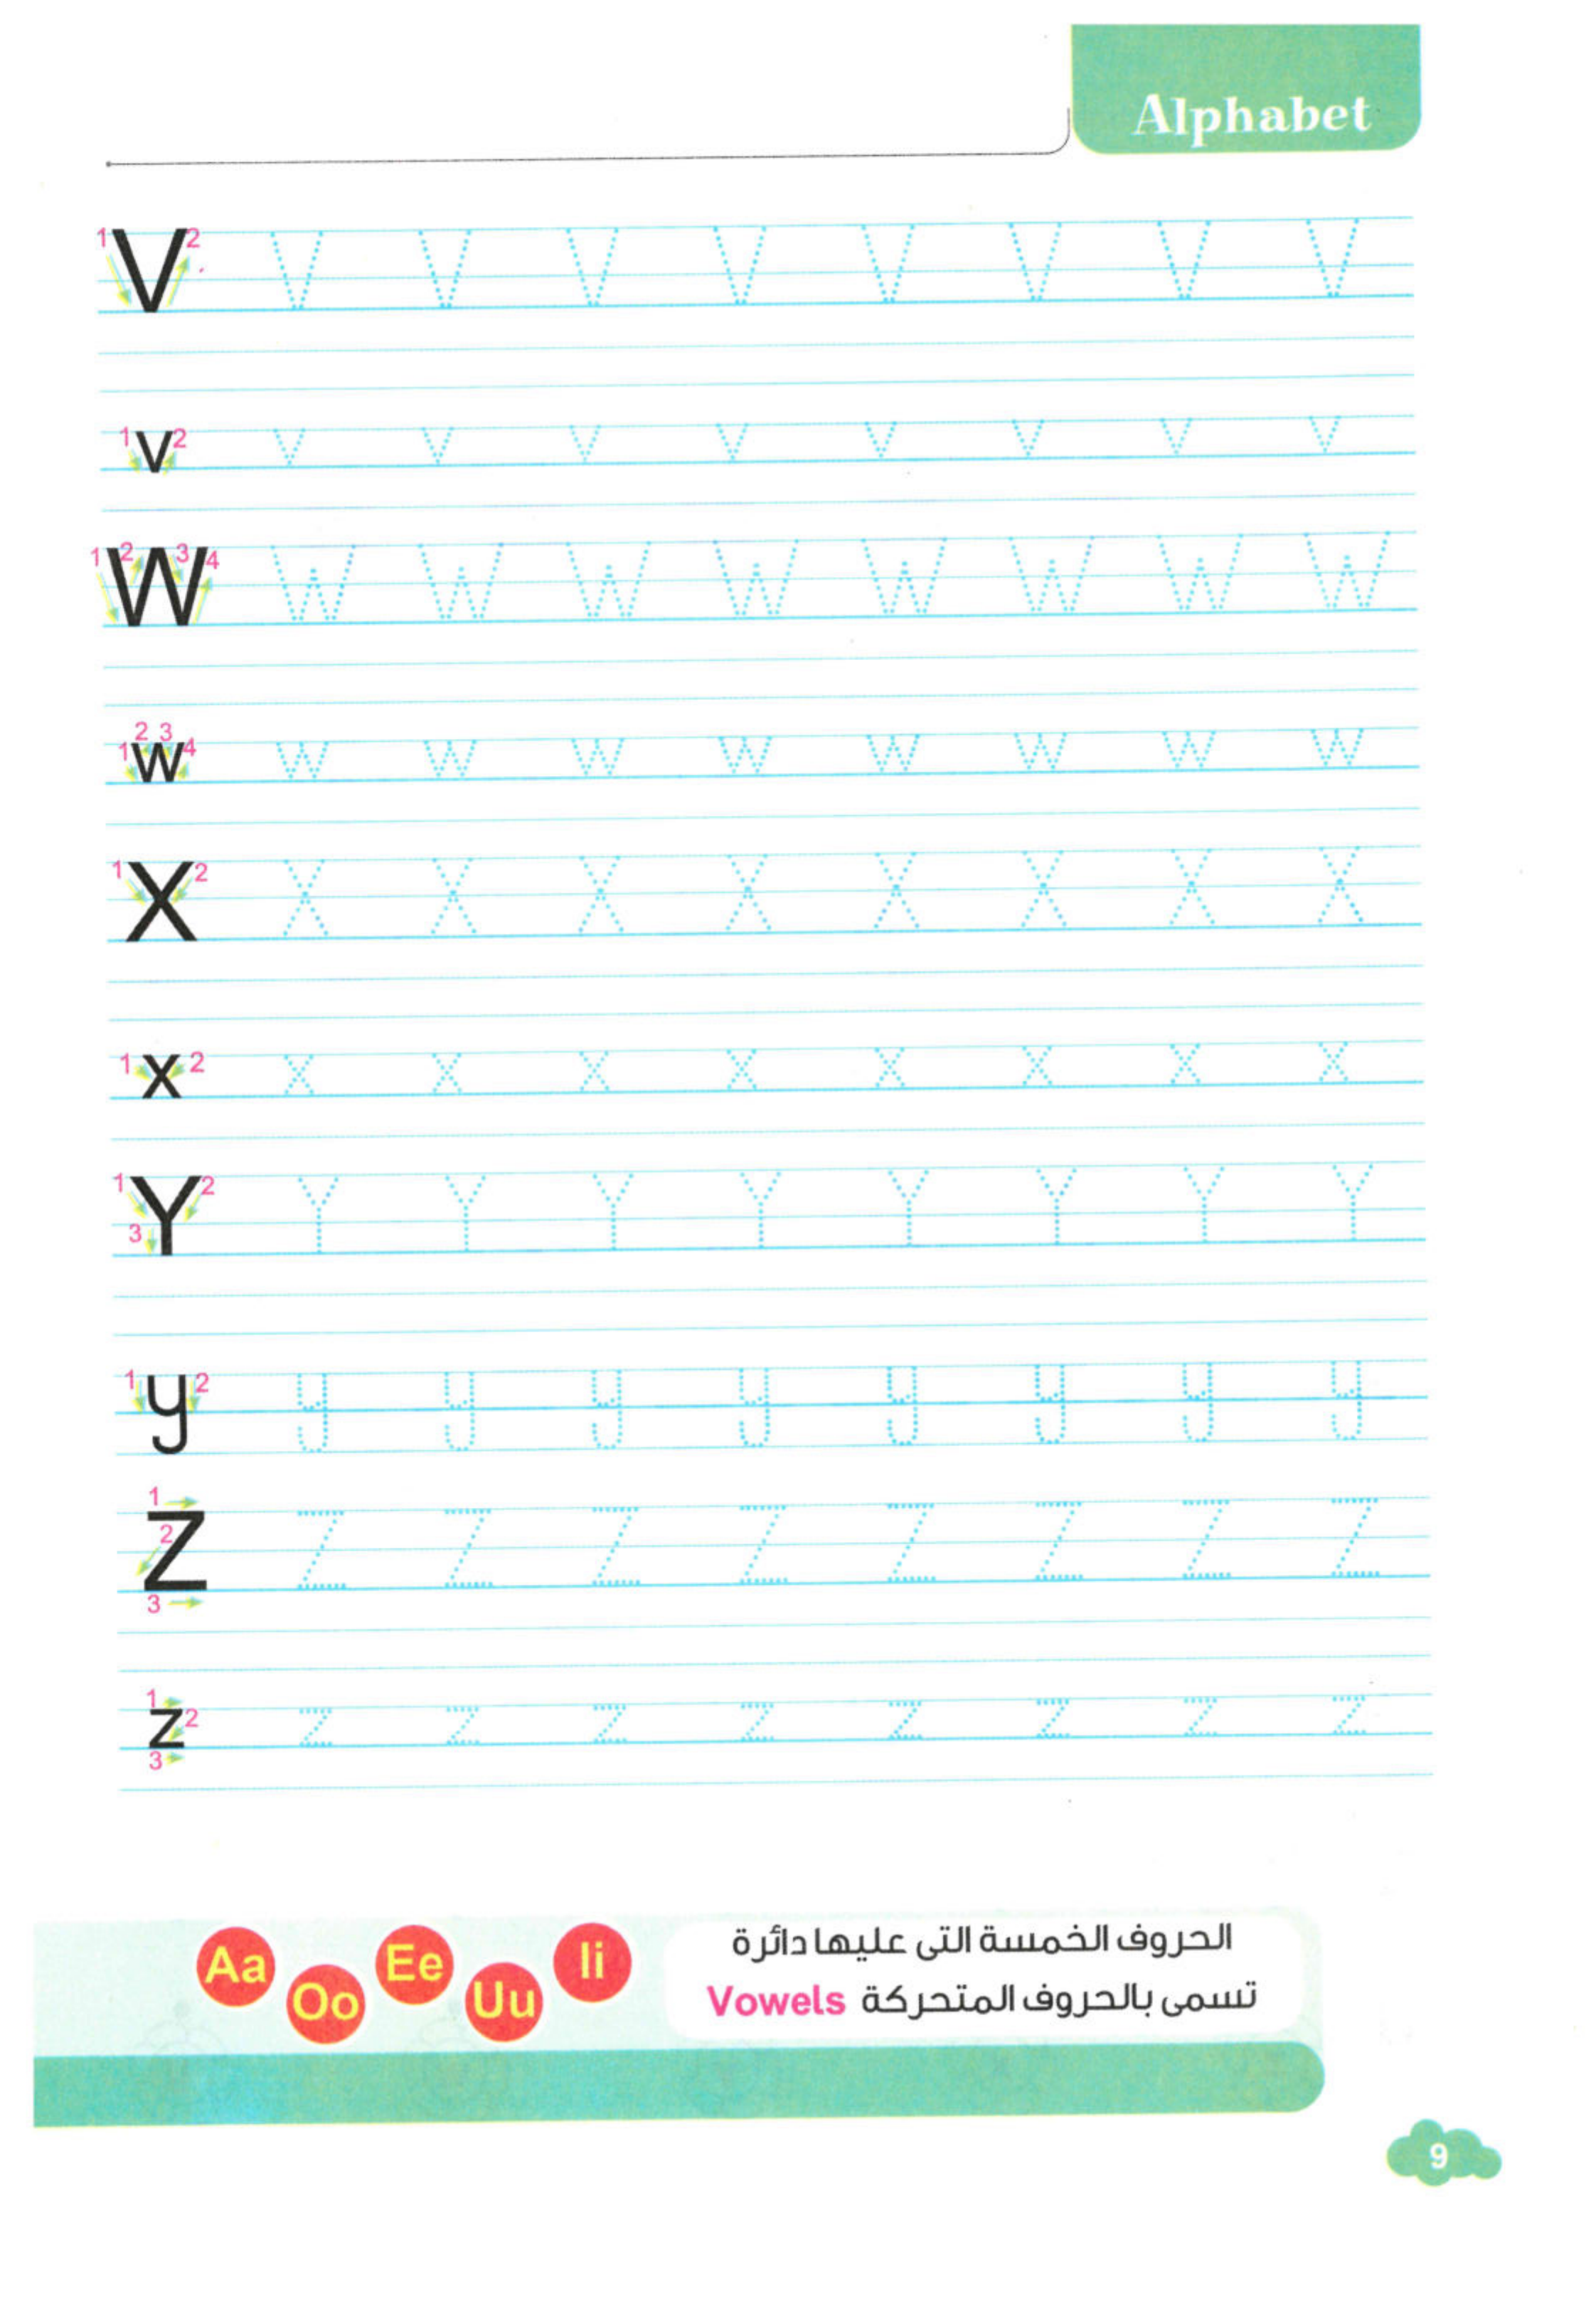 Alphabet
1 V 2 V V V V V V V V
1 v 2 v v v v v v v v
1 2 W 3 4 W W W W W W W W
2 3
1 w 4 w w w w w w w w
1 X 2 X X X X X X X X
1 x 2 x x x x x x x x
1 Y 2 Y Y Y Y Y Y Y Y
3
1 y 2 y y y y y y y y
1
2 Z Z Z Z Z Z Z Z Z
3
1
z 2 z z z z z z z z
3
Aa Oo Ee Uu Ii
الحروف الخمسة التى عليها دائرة
تسمى بالحروف المتحركة Vowels
9